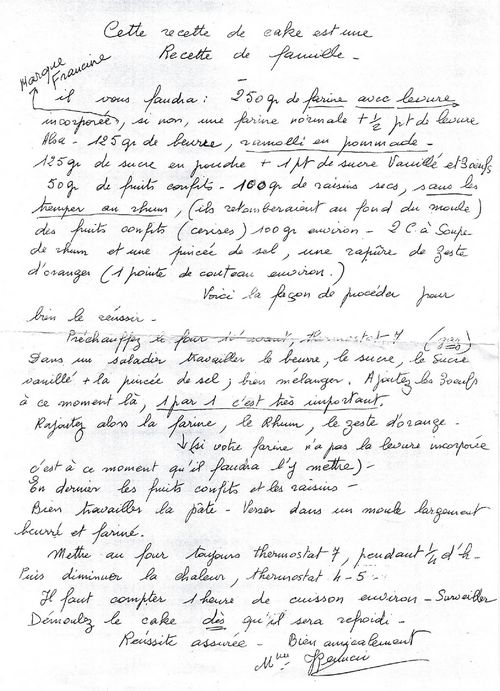 Cette recette de cake est une
Recette de famille -
Marque
Francine
il vous faudra : 250 gr de farine avec levure
incorporée, si non, une farine normale + 1/2 pt de levure
Alsa - 125 gr de beurre, ramolli en pommade -
125 gr de sucre en poudre + 1 pt de sucre Vanillé et 3 oeufs
50 gr de fruits confits - 100 gr de raisins secs, sans les
tremper au rhum, (ils retomberaient au fond du moule)
des fruits confits (cerises) 100 gr environ - 2 C. à Soupe
de rhum et une pincée de sel, une rapûre de zeste
d'oranger (1 pointe de couteau environ.)
Voici la façon de procéder pour
bien le réussir -
Préchauffez le four avant, thermostat 7 (gaz)
Dans un saladier travailler le beurre, le sucre, le sucre
vanillé + la pincée de sel ; bien mélanger. Ajoutez les 3 oeufs
à ce moment là, 1 par 1 c'est très important.
Rajoutez alors la farine, le Rhum, le zeste d'orange -
(si votre farine n'a pas la levure incorporée
c'est à ce moment qu'il faudra l'y mettre) -
En dernier les fruits confits et les raisins -
Bien travailler la pâte - Verser dans un moule largement
beurré et fariné.
Mettre au four toujours thermostat 7, pendant 1/4 d'h -
Puis diminuer la chaleur, thermostat 4-5 -
Il faut compter 1 heure de cuisson environ - Surveiller
Démoulez le cake dès qu'il sera refroidi -
Réussite assurée - Bien amicalement